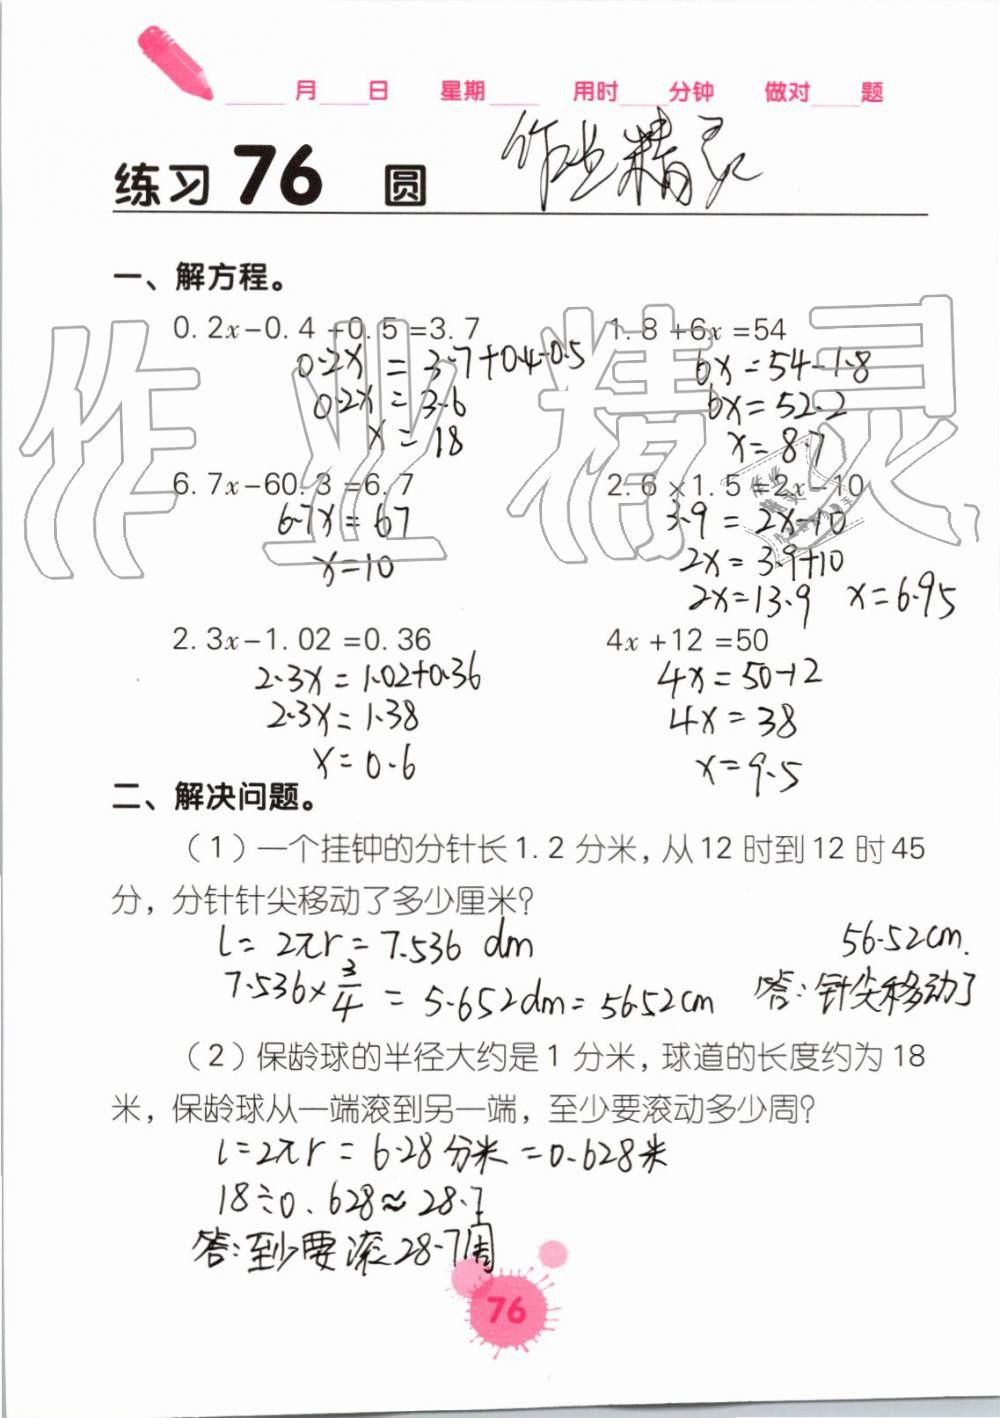 月 日 星期 用时 分钟 做对 题
练习 76 圆 作业精灵
一、解方程。
0.2x-0.4+0.5=3.7 1.8+6x=54
0.2x=3.7+0.4-0.5 6x=54-1.8
0.2x=3.6 6x=52.2
x=18 x=8.7
6.7x-60.3=6.7 2.6×1.5=2x-10
6.7x=67 3.9=2x-10
x=10 2x=3.9+10
2x=13.9 x=6.95
2.3x-1.02=0.36 4x+12=50
2.3x=1.02+0.36 4x=50-12
2.3x=1.38 4x=38
x=0.6 x=9.5
二、解决问题。
(1)一个挂钟的分针长1.2分米,从12时到12时45
分,分针针尖移动了多少厘米?
l=2πr=7.536 dm 56.52cm.
7.536×3/4=5.652dm=56.52cm 答:针尖移动了
(2)保龄球的半径大约是1分米,球道的长度约为18
米,保龄球从一端滚到另一端,至少要滚动多少周?
l=2πr=6.28分米=0.628米
18÷0.628≈28.7
答:至少要滚28.7周
76
作业精灵